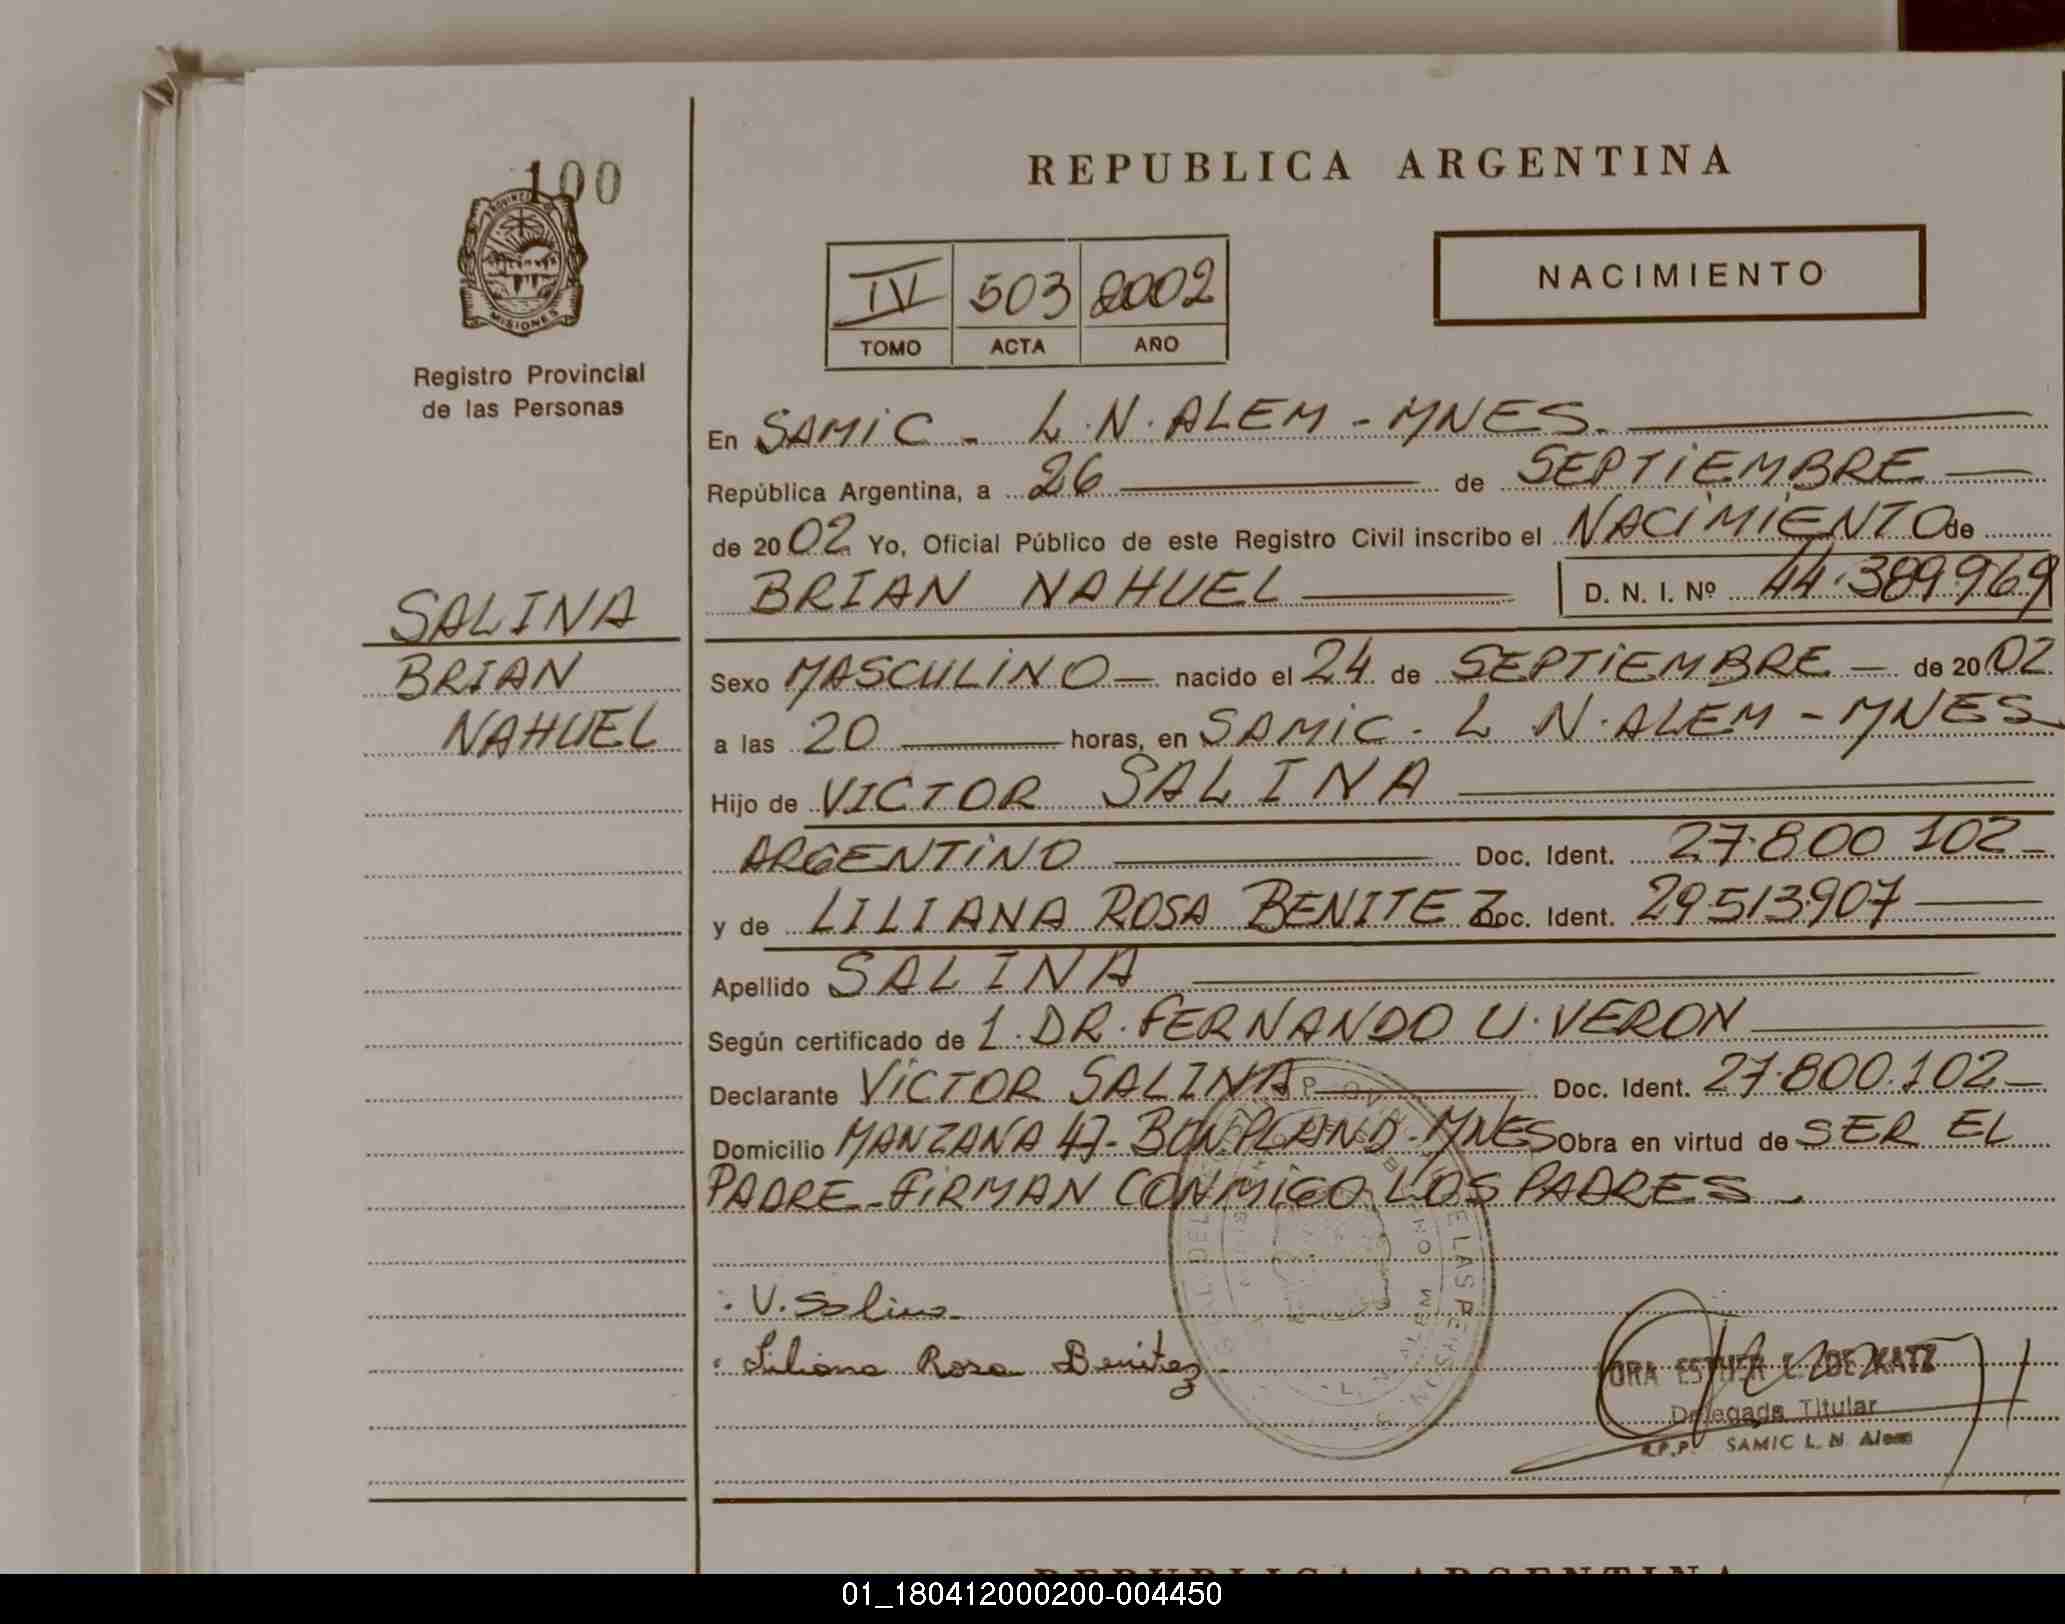 100
PROVINCIA DE
MISIONES
Registro Provincial
de las Personas
SALINA
BRIAN
NAHUEL
REPUBLICA ARGENTINA
IV 503 2002
TOMO ACTA AÑO
NACIMIENTO
En SAMIC - L.N.ALEM - MNES.
República Argentina, a 26 de SEPTIEMBRE
de 2002 Yo, Oficial Público de este Registro Civil inscribo el NACIMIENTO de
BRIAN NAHUEL D. N. I. Nº 44.389969
Sexo MASCULINO — nacido el 24 de SEPTIEMBRE — de 2002
a las 20 horas, en SAMIC - L N. ALEM - MNES
Hijo de VICTOR SALINA
ARGENTINO Doc. Ident. 27.800 102 -
y de LILIANA ROSA BENITEZ Doc. Ident. 29.513.907
Apellido SALINA
Según certificado de 1. DR. FERNANDO U. VERON
Declarante VICTOR SALINA Doc. Ident. 27.800.102 -
Domicilio MANZANA 47 - BONPLAND - MNES Obra en virtud de SER EL
PADRE - FIRMAN CONMIGO LOS PADRES.
V. Salina
Liliana Rosa Benitez
ESTHER L. DE KATZ
Delegada Titular
R.P.P. SAMIC L. N. Alem
REPUBLICA ARGENTINA
01_180412000200-004450